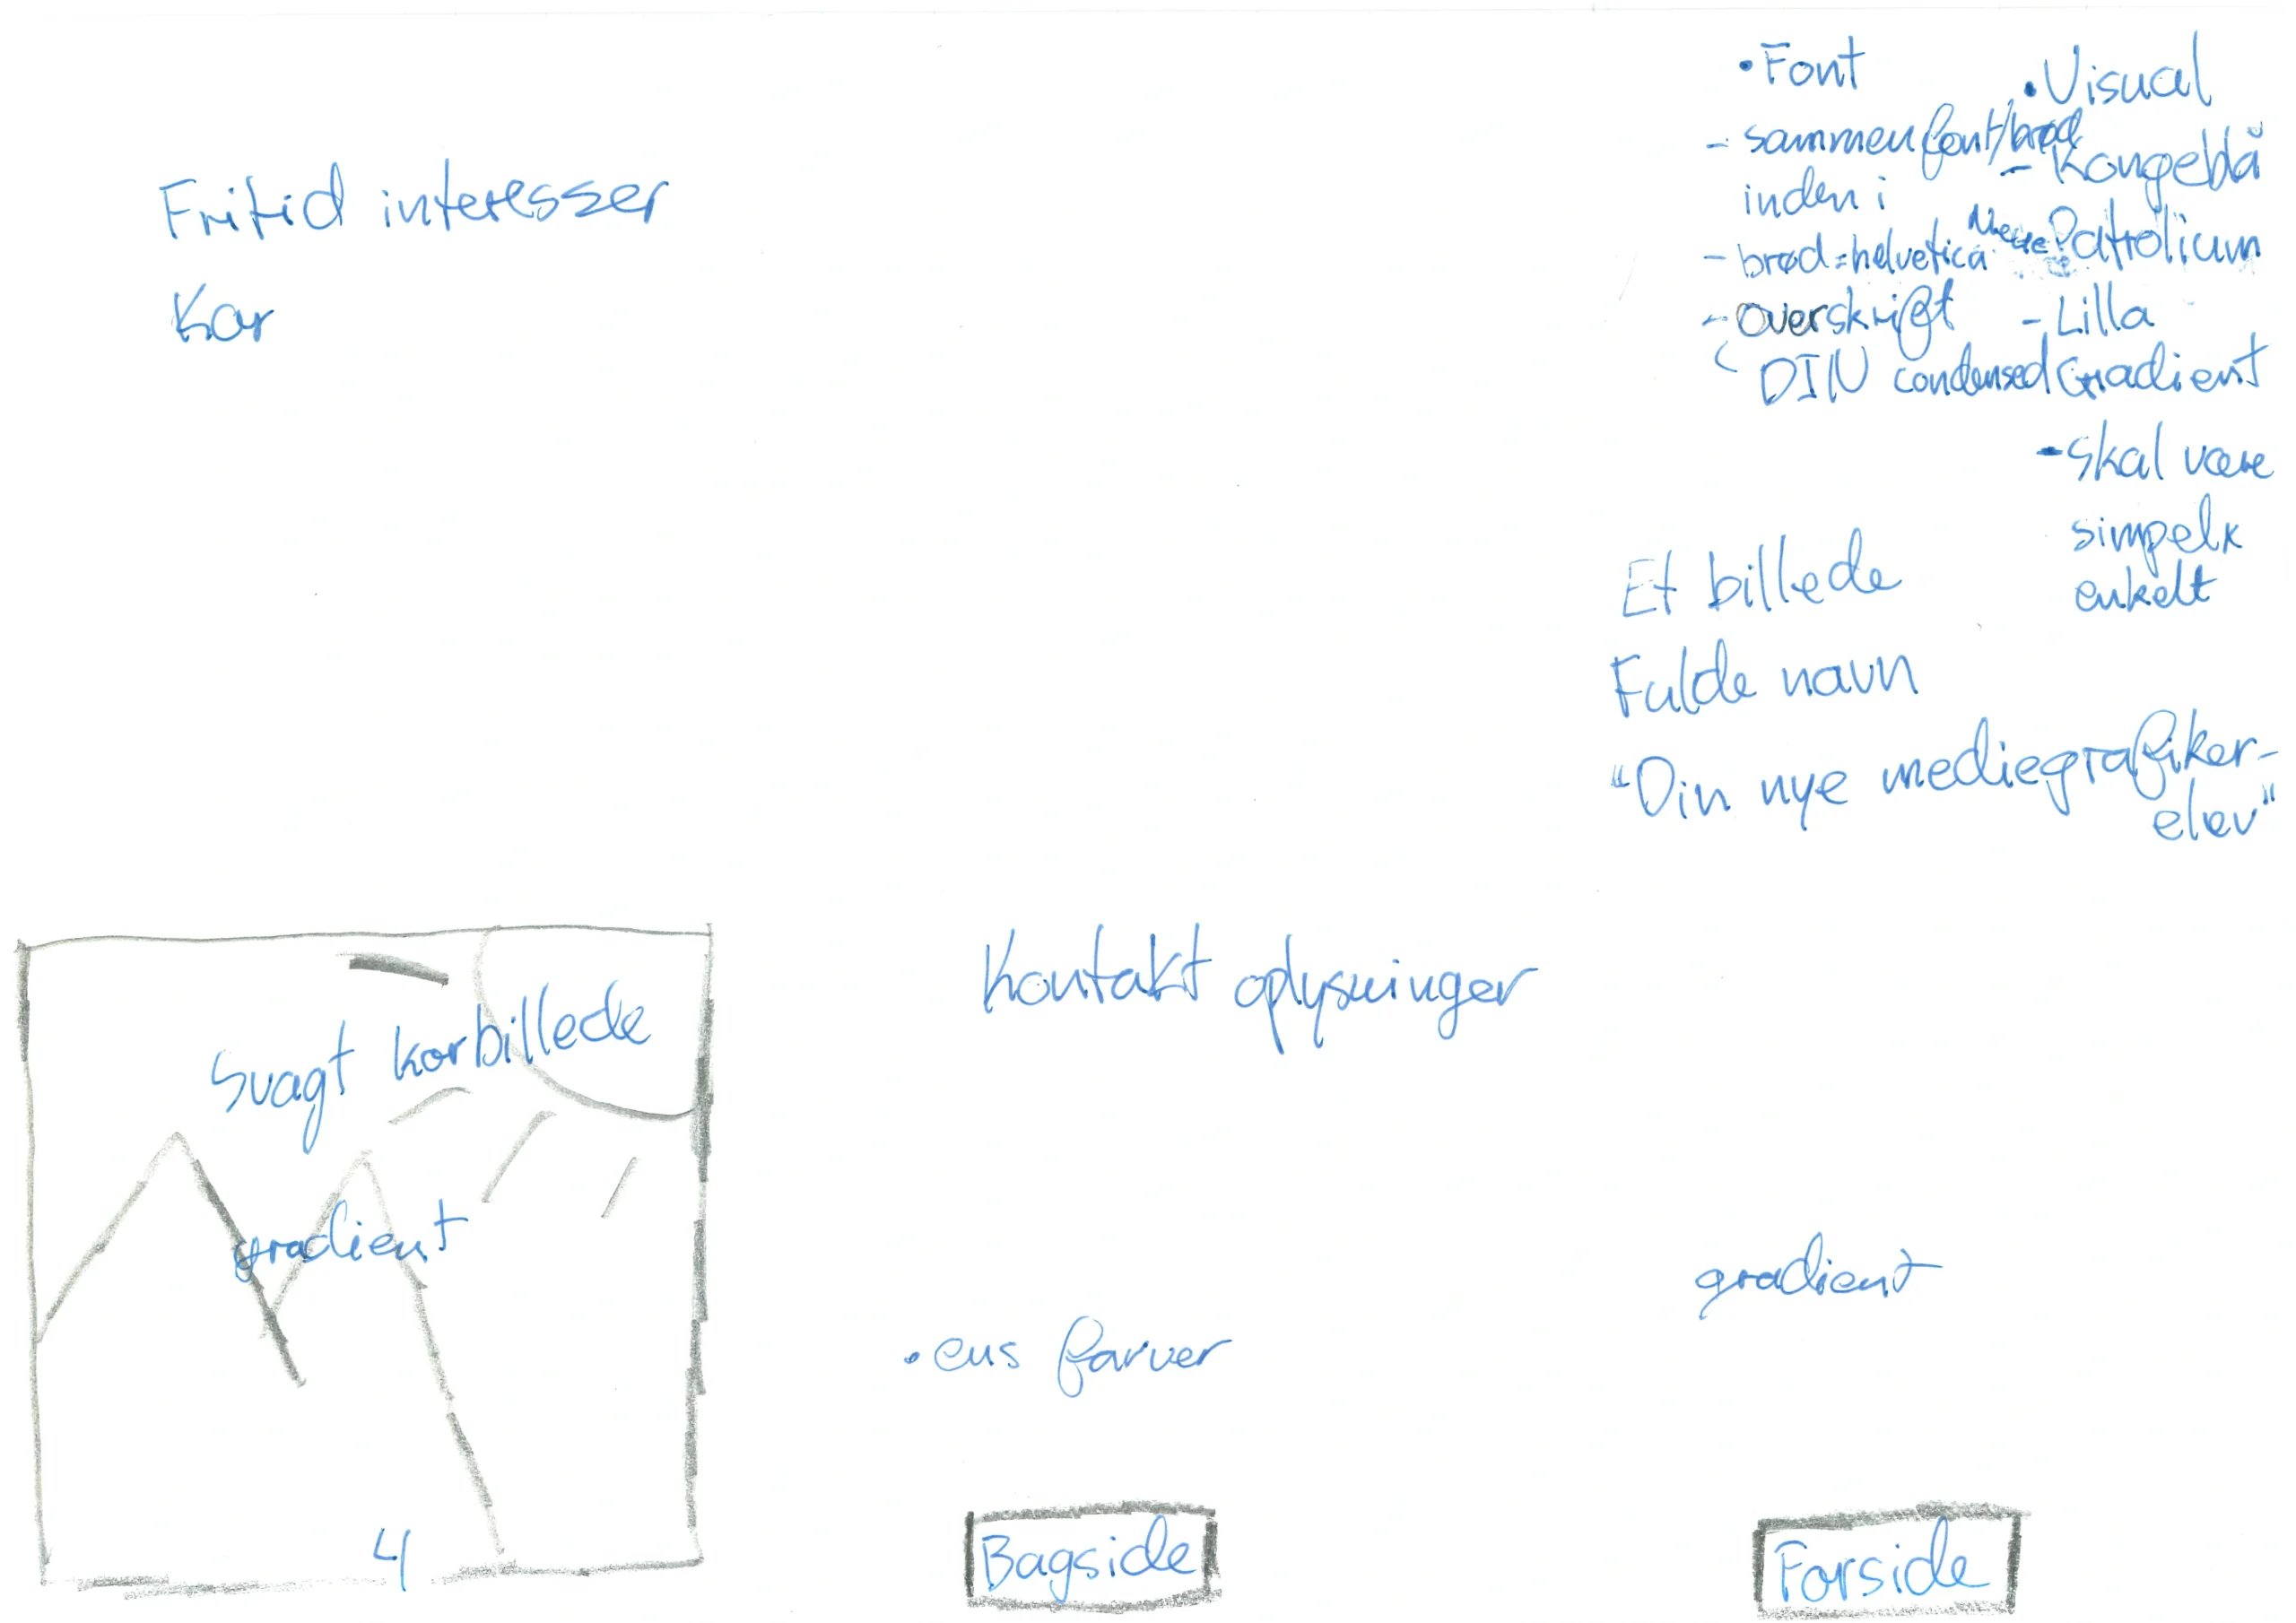 Fritid interesser
Kor
Svagt korbillede
gradient
4
Kontakt oplysninger
• ens farver
Bagside
• Font
- sammen font/brød
inden i
- brød = helvetica Neue
- Overskrift
DIN condensed
• Visual
- Kongeblå
Pattolium
- Lilla
Gradient
- skal være
simpelx
enkelt
Et billede
Fulde navn
"Din nye mediegrafiker-
elev"
gradient
Forside